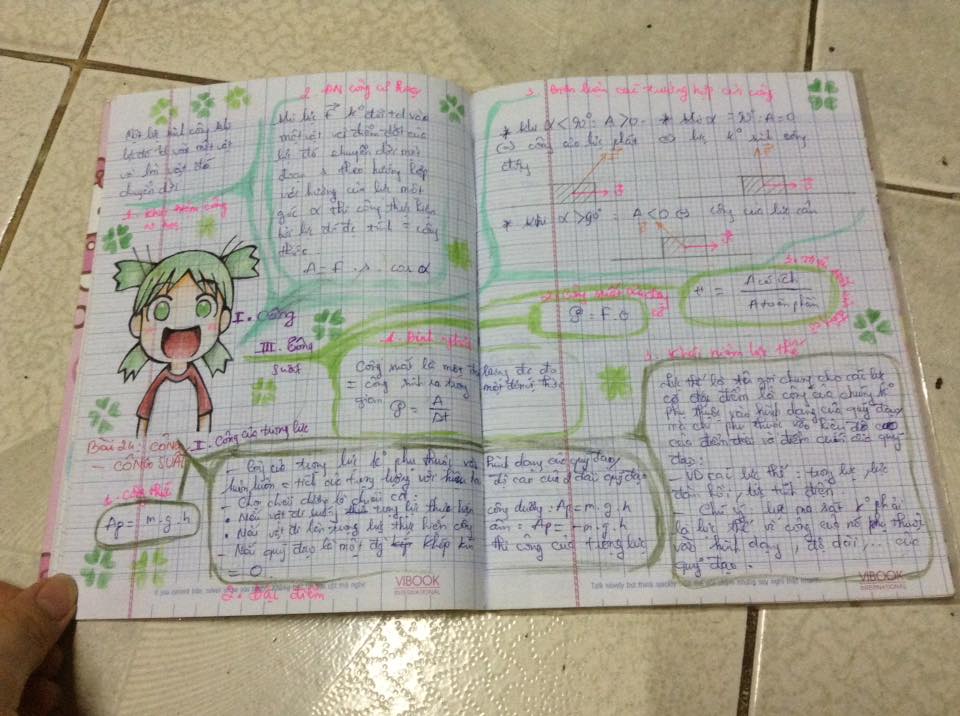 Một lực sinh công khi
lực đó td vào một vật
và làm vật đó
chuyển dời
1. Khái niệm công
cơ học
2. ĐN công cơ học
Khi lực F kº đổi td vào
một vật và điểm đặt của
lực đó chuyển dời một
đoạn s theo hướng hợp
với hướng của lực một
góc α thì công thực hiện
bởi lực đó đc tính = công
thức
A = F . s . cos α
I. Công
III. Công
suất
1. Định nghĩa
Công suất là một đại lượng đc đo
= công sinh ra trong một đơn vị thời
gian.
𝒫 = A / Δt
Bài 24: CÔNG
- CÔNG SUẤT
II. Công của trọng lực
1. Công thức
Ap = m.g.h
- Công của trọng lực kº phụ thuộc vào hình dạng của quỹ đạo,
luôn luôn = tích của trọng lượng với hiệu độ cao của 2 đầu quỹ đạo
- Chọn chiều dương là chiều
• Nếu vật đi xuống thì trọng lực thực hiện công dương: Ap = m.g.h
• Nếu vật đi lên trọng lực thực hiện công âm: Ap = - m.g.h
- Nếu quỹ đạo là một đg khép kín thì công của trọng lực
= 0
2. Đặc điểm
3. Biện luận các trường hợp của công
* Khi α < 90º: A > 0 * Khi α = 90º: A = 0
(=) công của lực phát (=) lực kº sinh công
động
F
* Khi α > 90º: A < 0 (=) công của lực cản
2. Công suất của động
cơ
𝒫 = F.
H = A có ích / A toàn phần
3. Khái niệm lực thế
Lực thế là tên gọi chung cho các lực
có đặc điểm là công của chúng kº
phụ thuộc vào hình dạng của quỹ đạo
mà chỉ phụ thuộc vào hiệu độ cao
của điểm đầu và điểm cuối của quỹ
đạo:
- VD các lực thế: trọng lực, lực
đàn hồi, lực tĩnh điện
- Chú ý: lực ma sát kº phải
là lực thế vì công của nó phụ thuộc
vào hình dạng, độ dài, ... của
quỹ đạo.
VIBOOK
INTERNATIONAL
Talk slowly but think quickly
VIBOOK
INTERNATIONAL